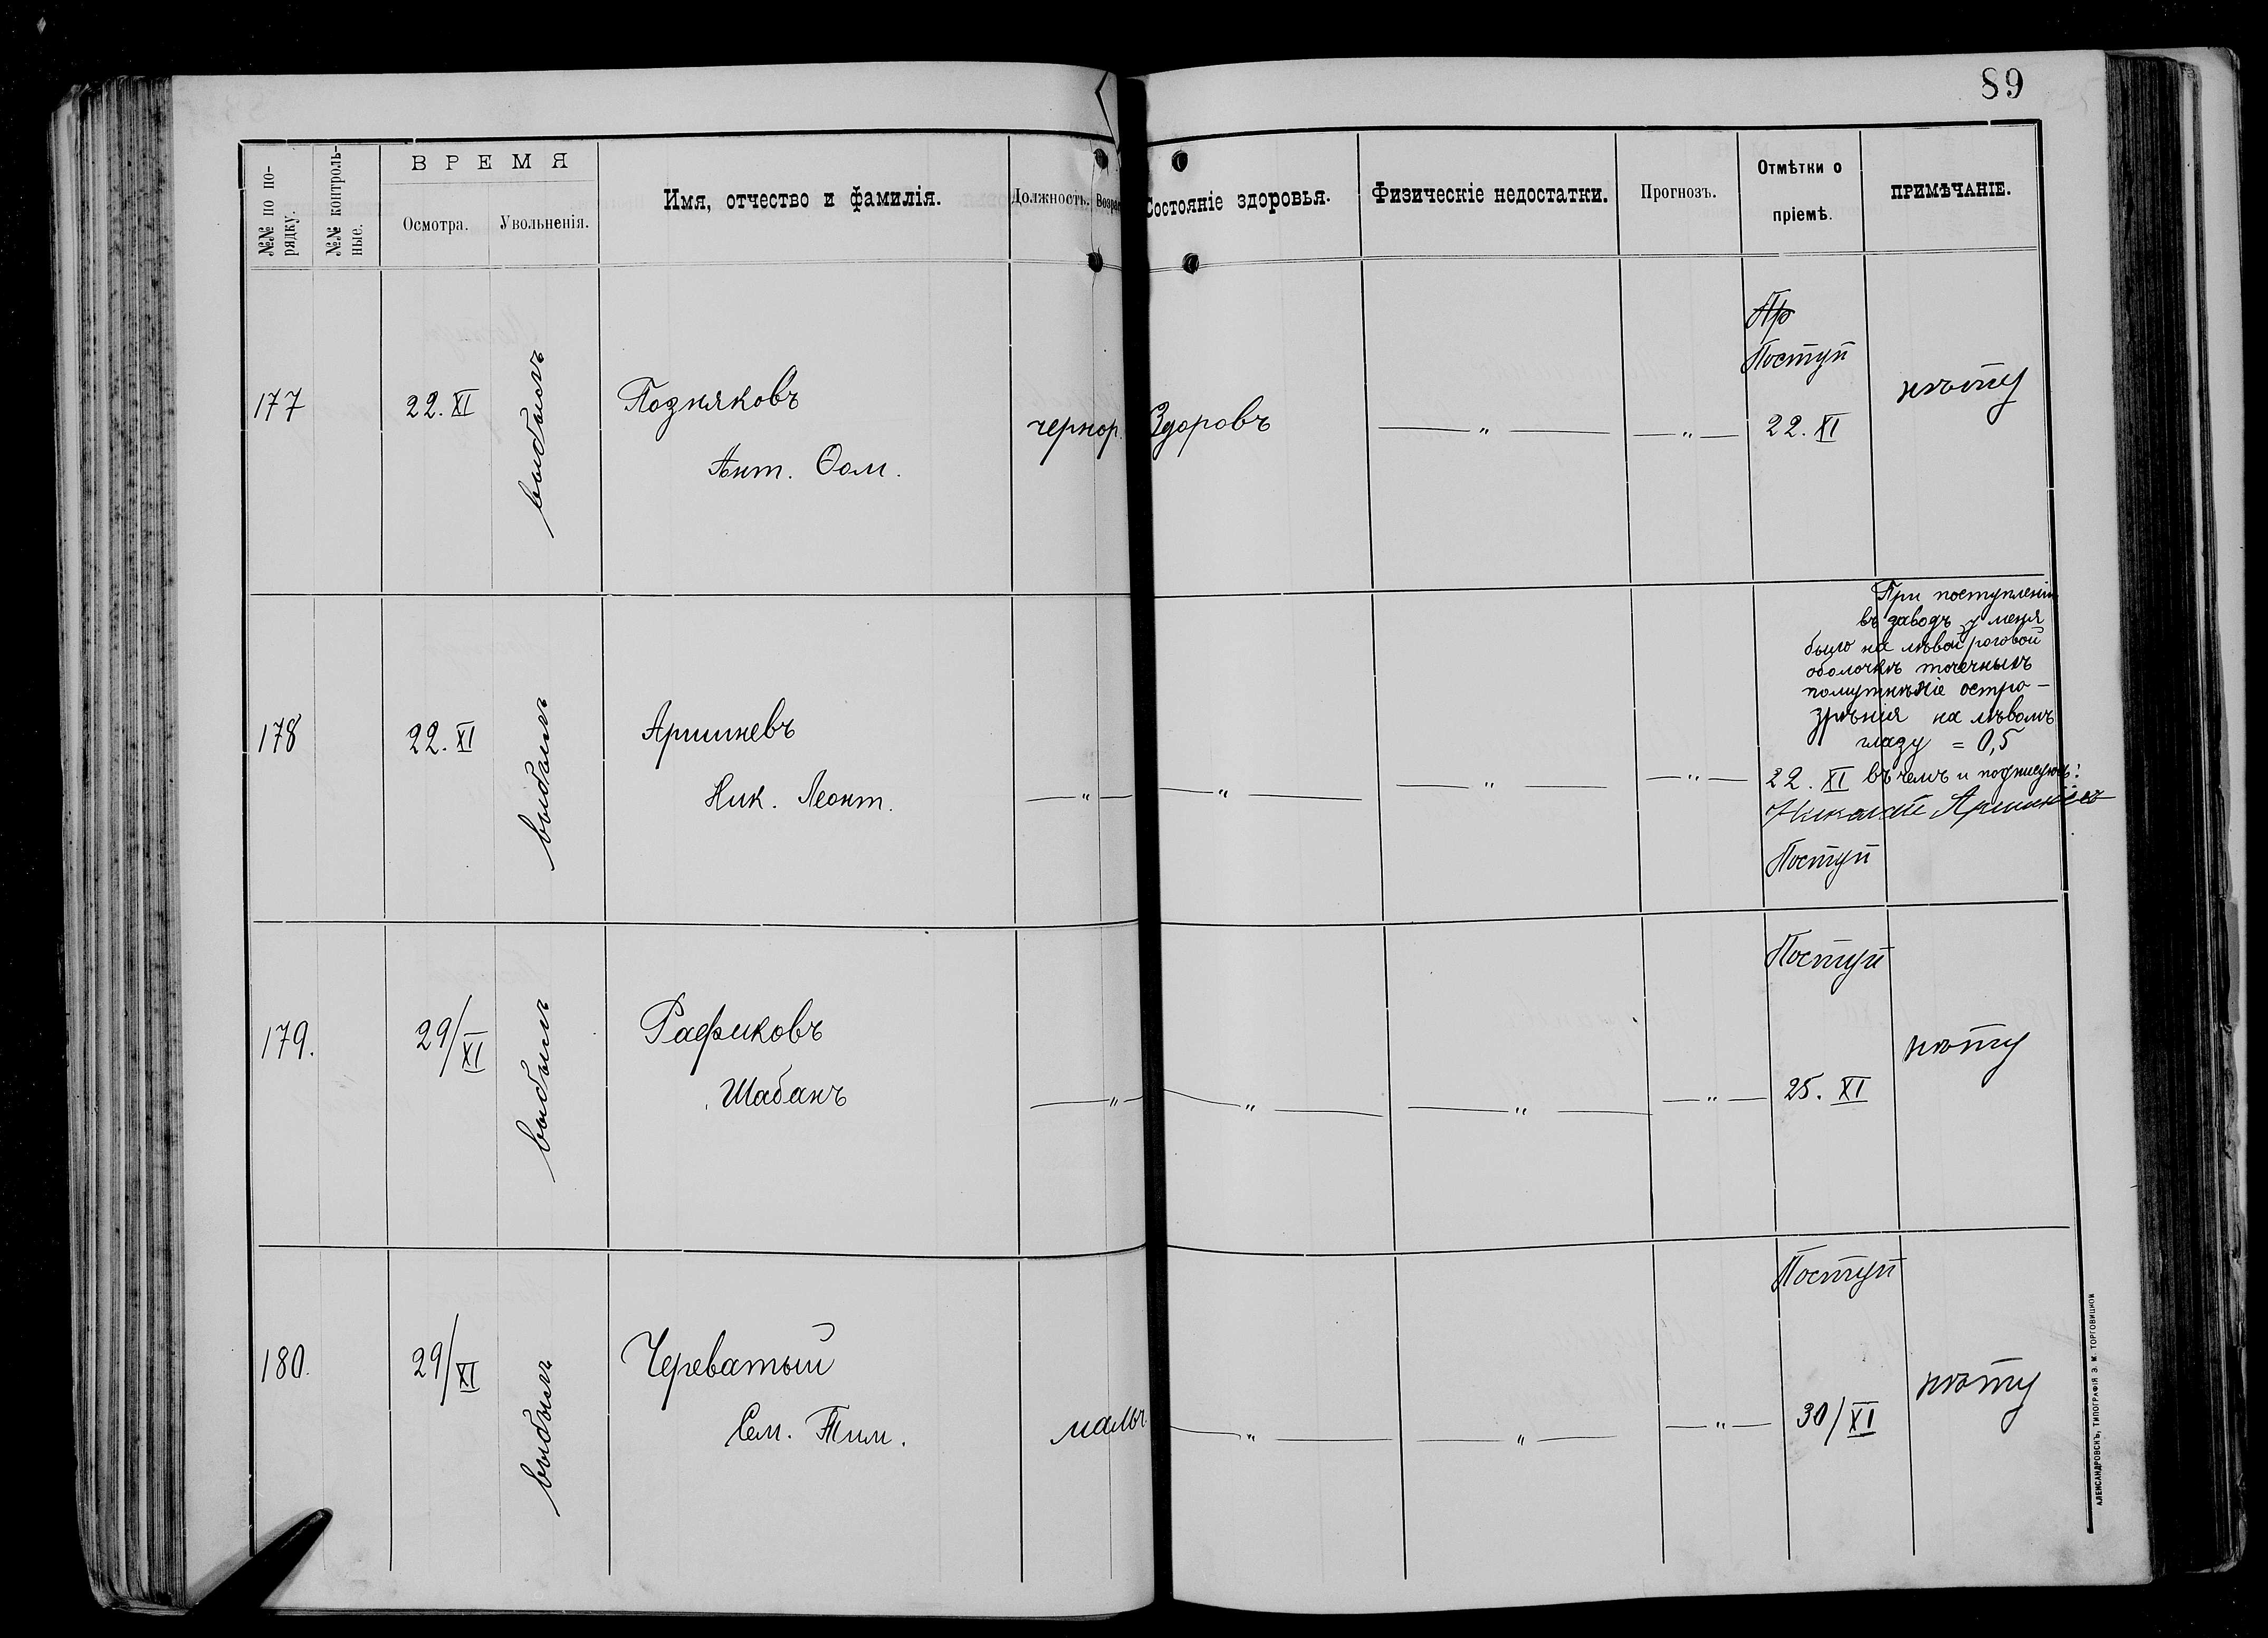 89
№№ по по-
рядку.
№№ контроль-
ные.
ВРЕМЯ
Осмотра.
Увольненія.
Имя, отчество и фамилія.
Должность.
Состояніе здоровья.
Физическіе недостатки.
Прогнозъ.
Отмѣтки о
пріемѣ.
ПРИМѢЧАНІЕ.
177
22. XI
выбылъ
Позняковъ
Ант. Ѳом.
чернор.
Здоровъ
— " —
— " —
Пр
Поступ
22. XI
нѣту
178
22. XI
выбылъ
Аришневъ
Ник. Леонт.
— " —
— " —
— " —
— " —
При поступленіи
въ заводъ у меня
было на лѣвой роговой
оболочкѣ точечныхъ
помутнѣніе остро-
зрѣнія на лѣвомъ
глазу = 0,5
22. XI въ чемъ и подписуюсь:
Николай
Поступ
179.
29/XI
выбылъ
Рафиковъ
Шабанъ
— " —
— " —
— " —
— " —
Поступ
25. XI
нѣту
180.
29/XI
выбылъ
Череватый
Сем. Тим.
мальч
— " —
— " —
— " —
Поступ
30/XI
нѣту
АЛЕКСАНДРОВСКЪ, ТИПОГРАФІЯ Э. М. ТОРГОВИЦКОЙ